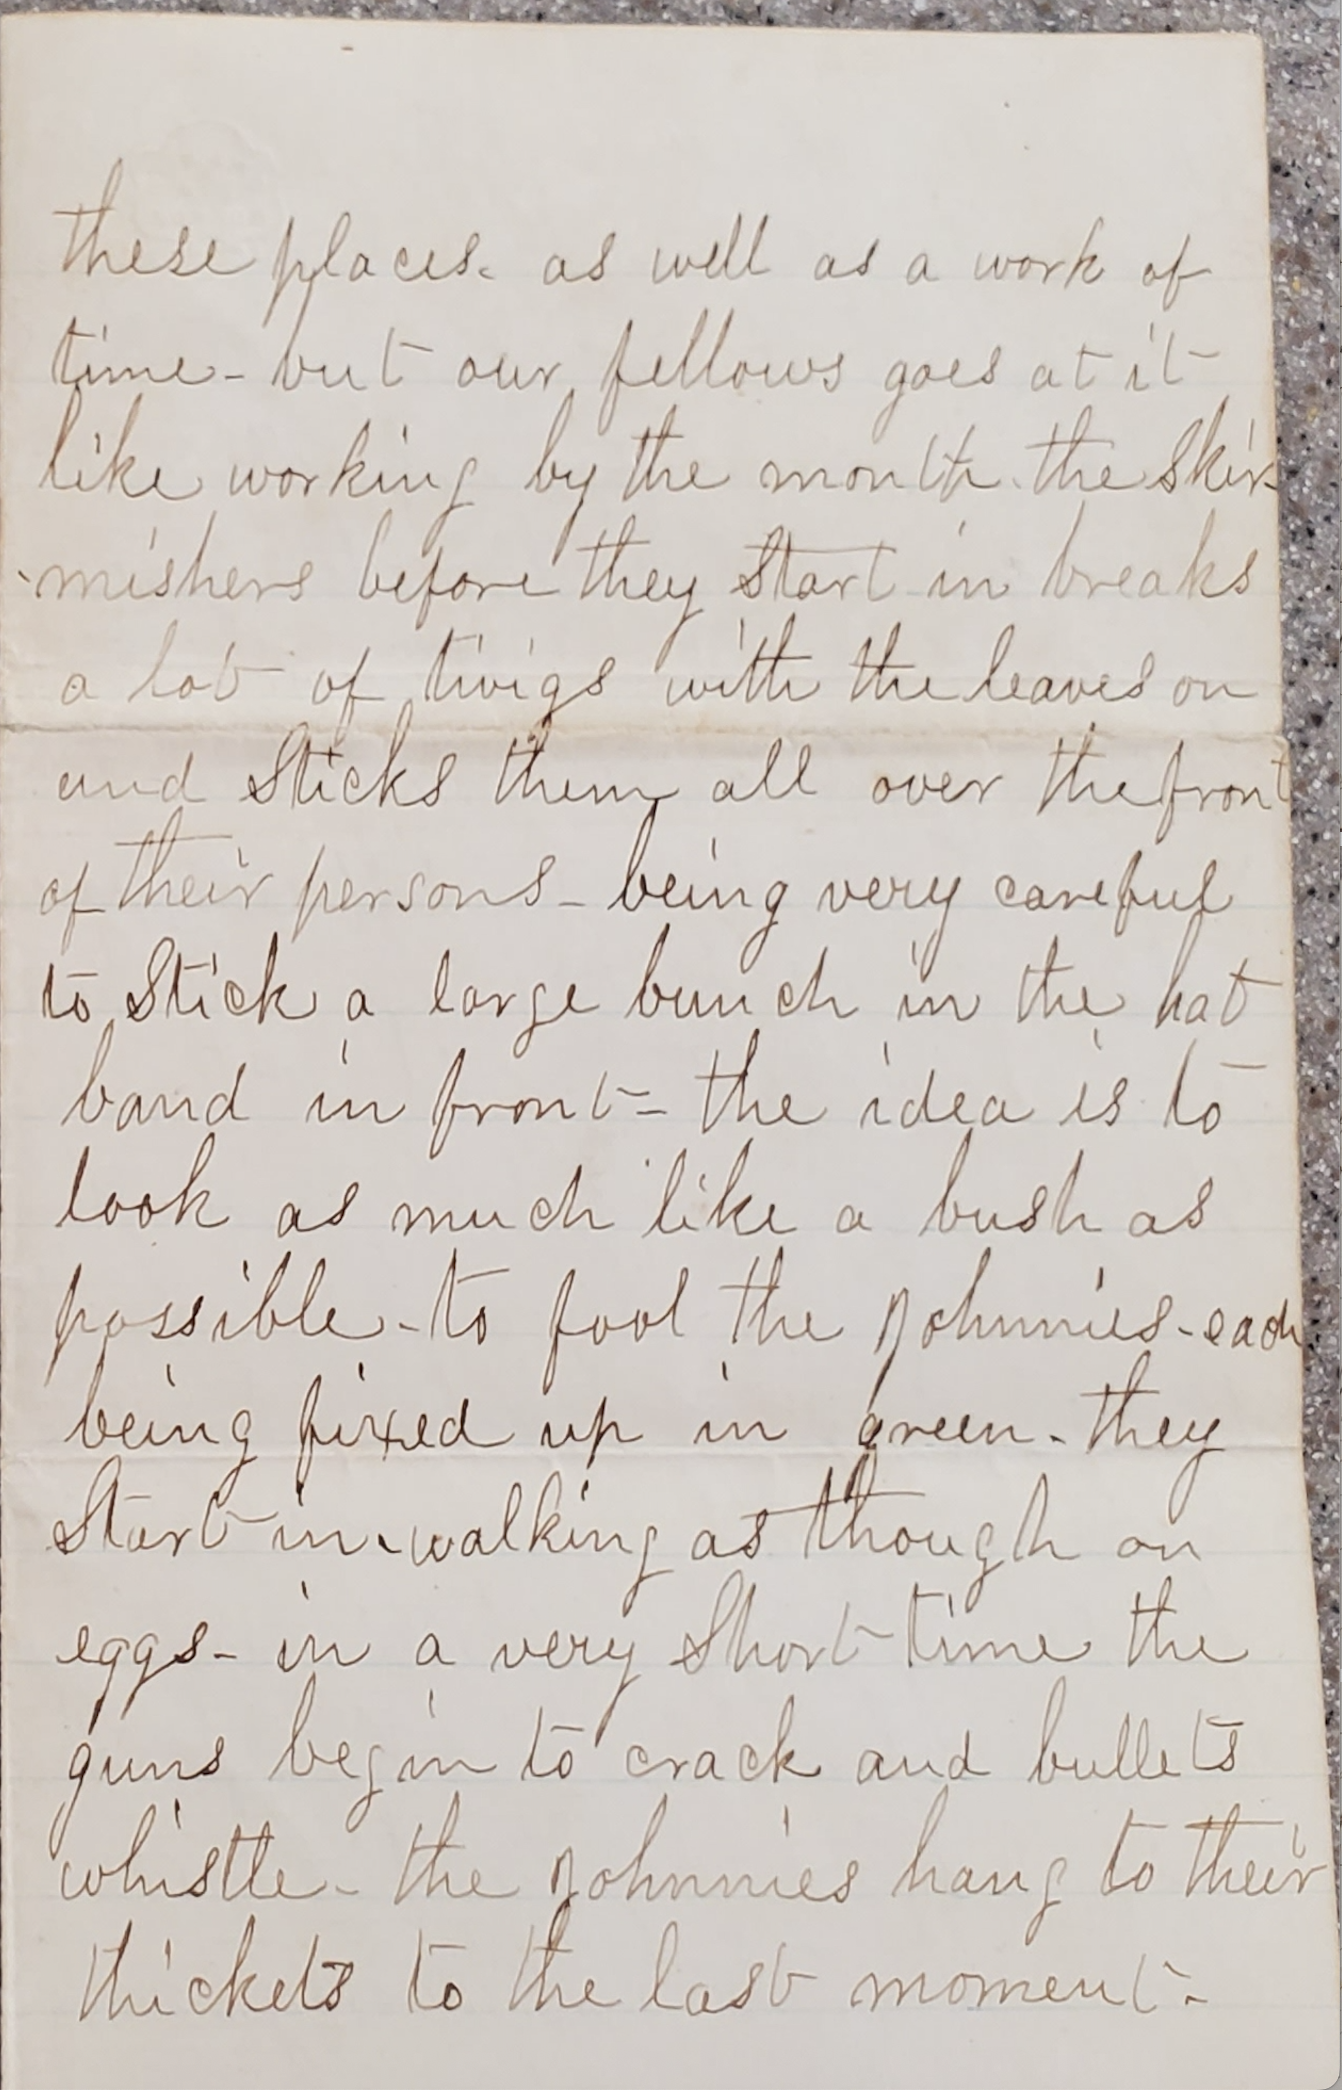 these places. as well as a work of
time - but our fellows goes at it
like working by the month. the Skir-
-mishers before they Start in breaks
a lot of twigs with the leaves on
and Sticks them all over the front
of their persons - being very careful
to Stick a large bunch in the hat
band in front - the idea is to
look as much like a bush as
possible - to fool the Johnnies - each
being fixed up in green - they
Start in - walking as though on
eggs - in a very Short time the
guns begin to crack and bullets
whistle - the Johnnies hang to their
thickets to the last moment -